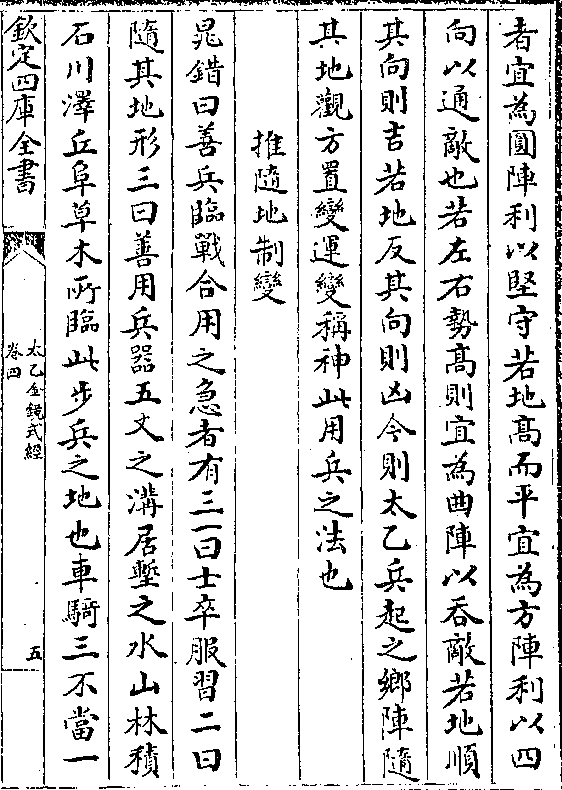 者宜為圓陣利以堅守若地髙而平宜為方陣利以四
向以通敵也若左右勢髙則宜為曲陣以吞敵若地順
其向則吉若地反其向則凶今則太乙兵起之鄉陣隨
其地觀方置變運變稱神此用兵之法也
推隨地制變
晁錯曰善兵臨戰合用之急者有三一曰士卒服習二曰
隨其地形三曰善用兵器五丈之溝居塹之水山林積
石川澤丘阜草木所臨此步兵之地也車騎三不當一
欽定四庫全書
太乙金鏡式經
卷四
五